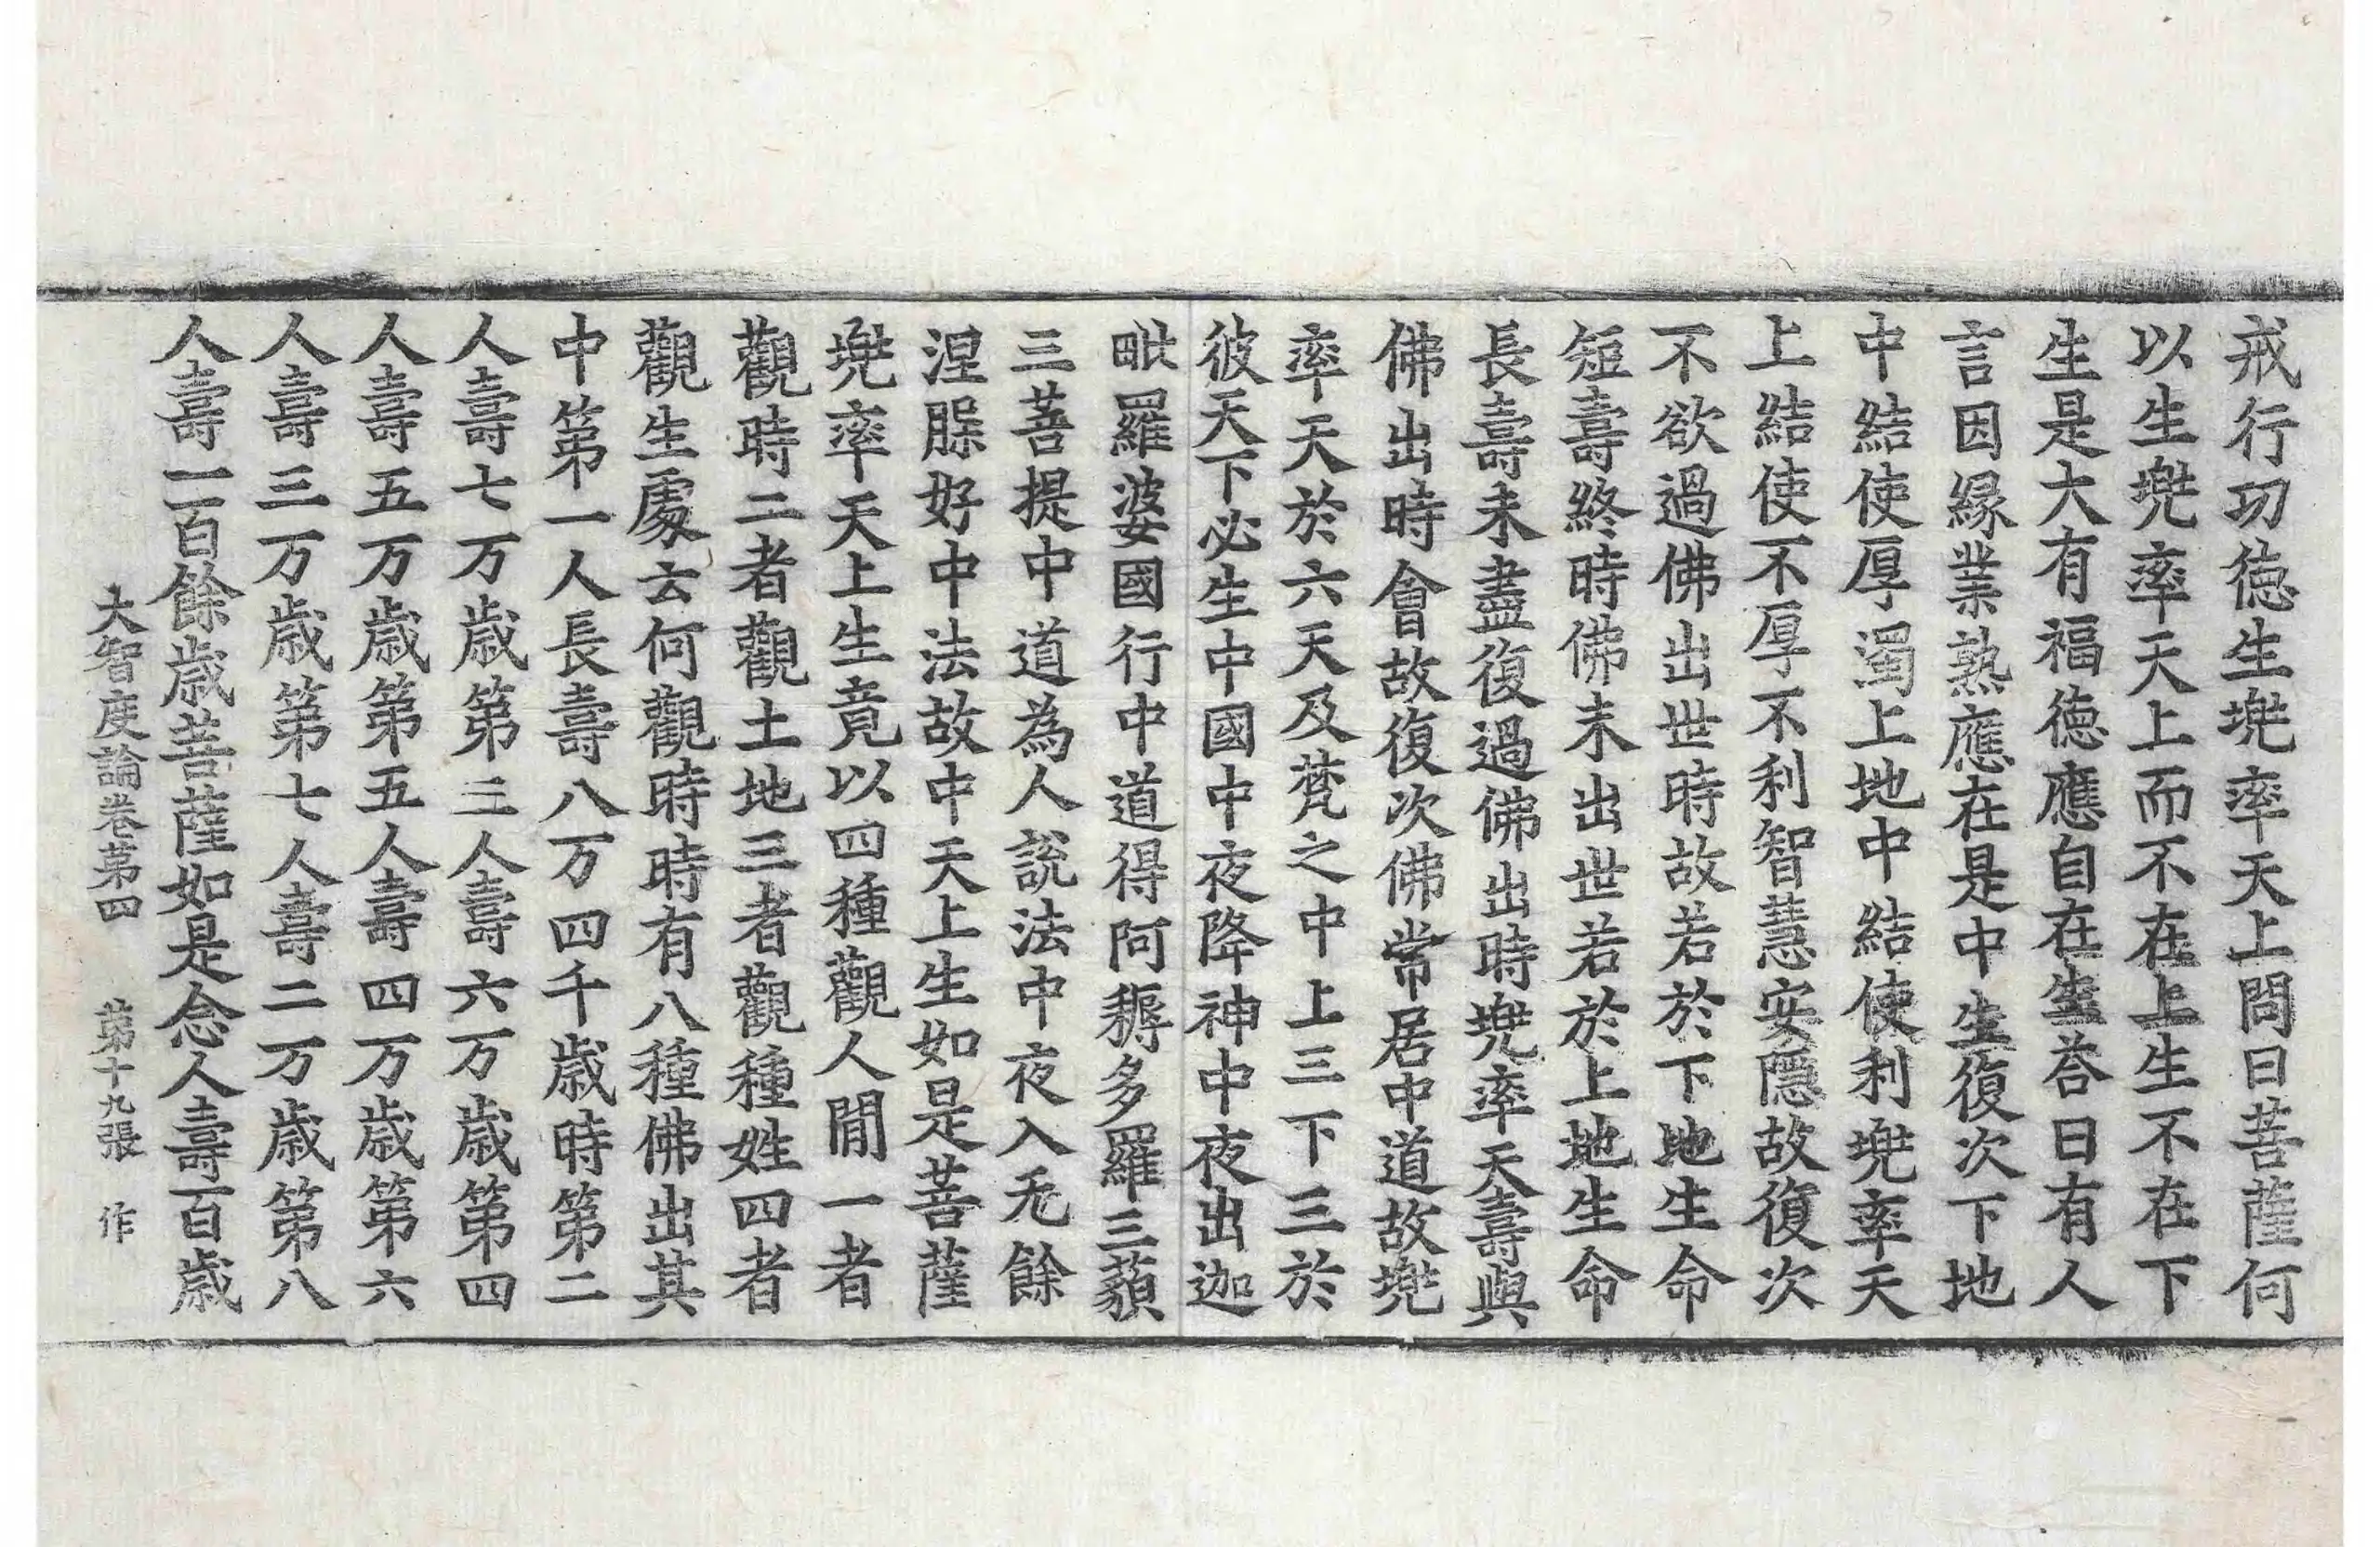 戒行功德生兠率天上問曰菩薩何
以生兠率天上而不在上生不在下
生是大有福德應自在生荅曰有人
言因緣業熟應在是中生復次下地
中結使厚濁上地中結使利兠率天
上結使不厚不利智慧安隱故復次
不欲過佛出世時故若於下地生命
短壽終時佛未出世若於上地生命
長壽未盡復過佛出時兠率天壽與
佛出時會故復次佛常居中道故兠
率天於六天及梵之中上三下三於
彼天下必生中國中夜降神中夜出迦
毗羅婆國行中道得阿耨多羅三藐
三菩提中道為人說法中夜入无餘
涅脲好中法故中天上生如是菩薩
兠率天上生竟以四種觀人閒一者
觀時二者觀土地三者觀種姓四者
觀生處云何觀時時有八種佛出其
中第一人長壽八万四千歲時第二
人壽七万歲第三人壽六万歲第四
人壽五万歲第五人壽四万歲第六
人壽三万歲第七人壽二万歲第八
人壽一百餘歲菩薩如是念人壽百歲
大智度論卷第四 第十九張 作